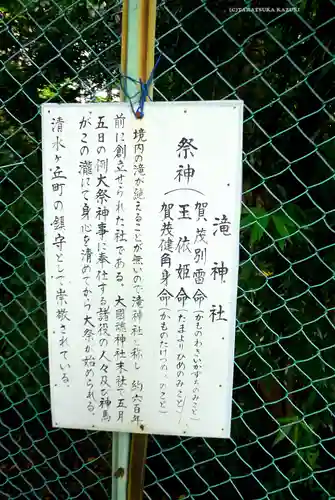 (C)TAKATSUKA KAZUKI
滝神社
祭神(
賀茂別雷命(かものわきいかずちのみこと)
玉依姫命(たまよりひめのみこと)
賀茂健角身命(かものたけつぬみのこと)
境内の滝が絶えることが無いので滝神社と称し 約六百年
前に創立せられた社である。大國魂神社末社で五月
五日の例大祭神事に奉仕する諸役の人々及び神馬
がこの瀧にて身心を清めてから大祭が始められる。
清水ヶ丘町の鎮守として崇敬されている。